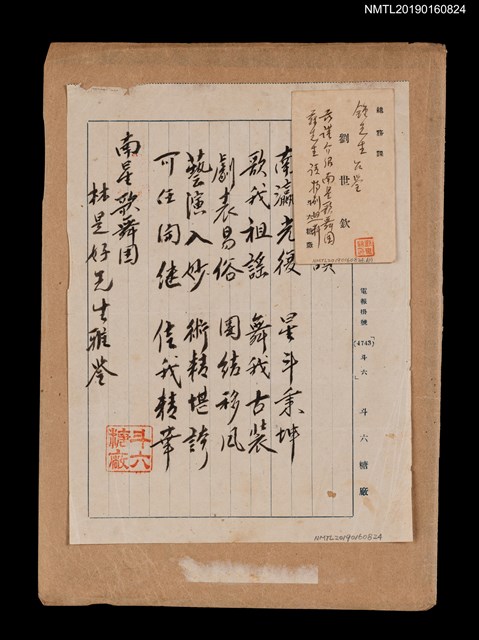 NMTL20190160824
總務課
鍾先生台鑒
劉世欽
茲謹介紹南星歌舞團
南瀛光復 星斗秉坤
歌我祖謠 舞我古裝
劇表易俗 團結移風
藝演入妙 術精堪誇
可任同繼 信我精華
南星歌舞團
林是好先生雅鑒
斗六糖廠
電報掛號
(4743)斗六
斗六糖廠
NMTL20190160824